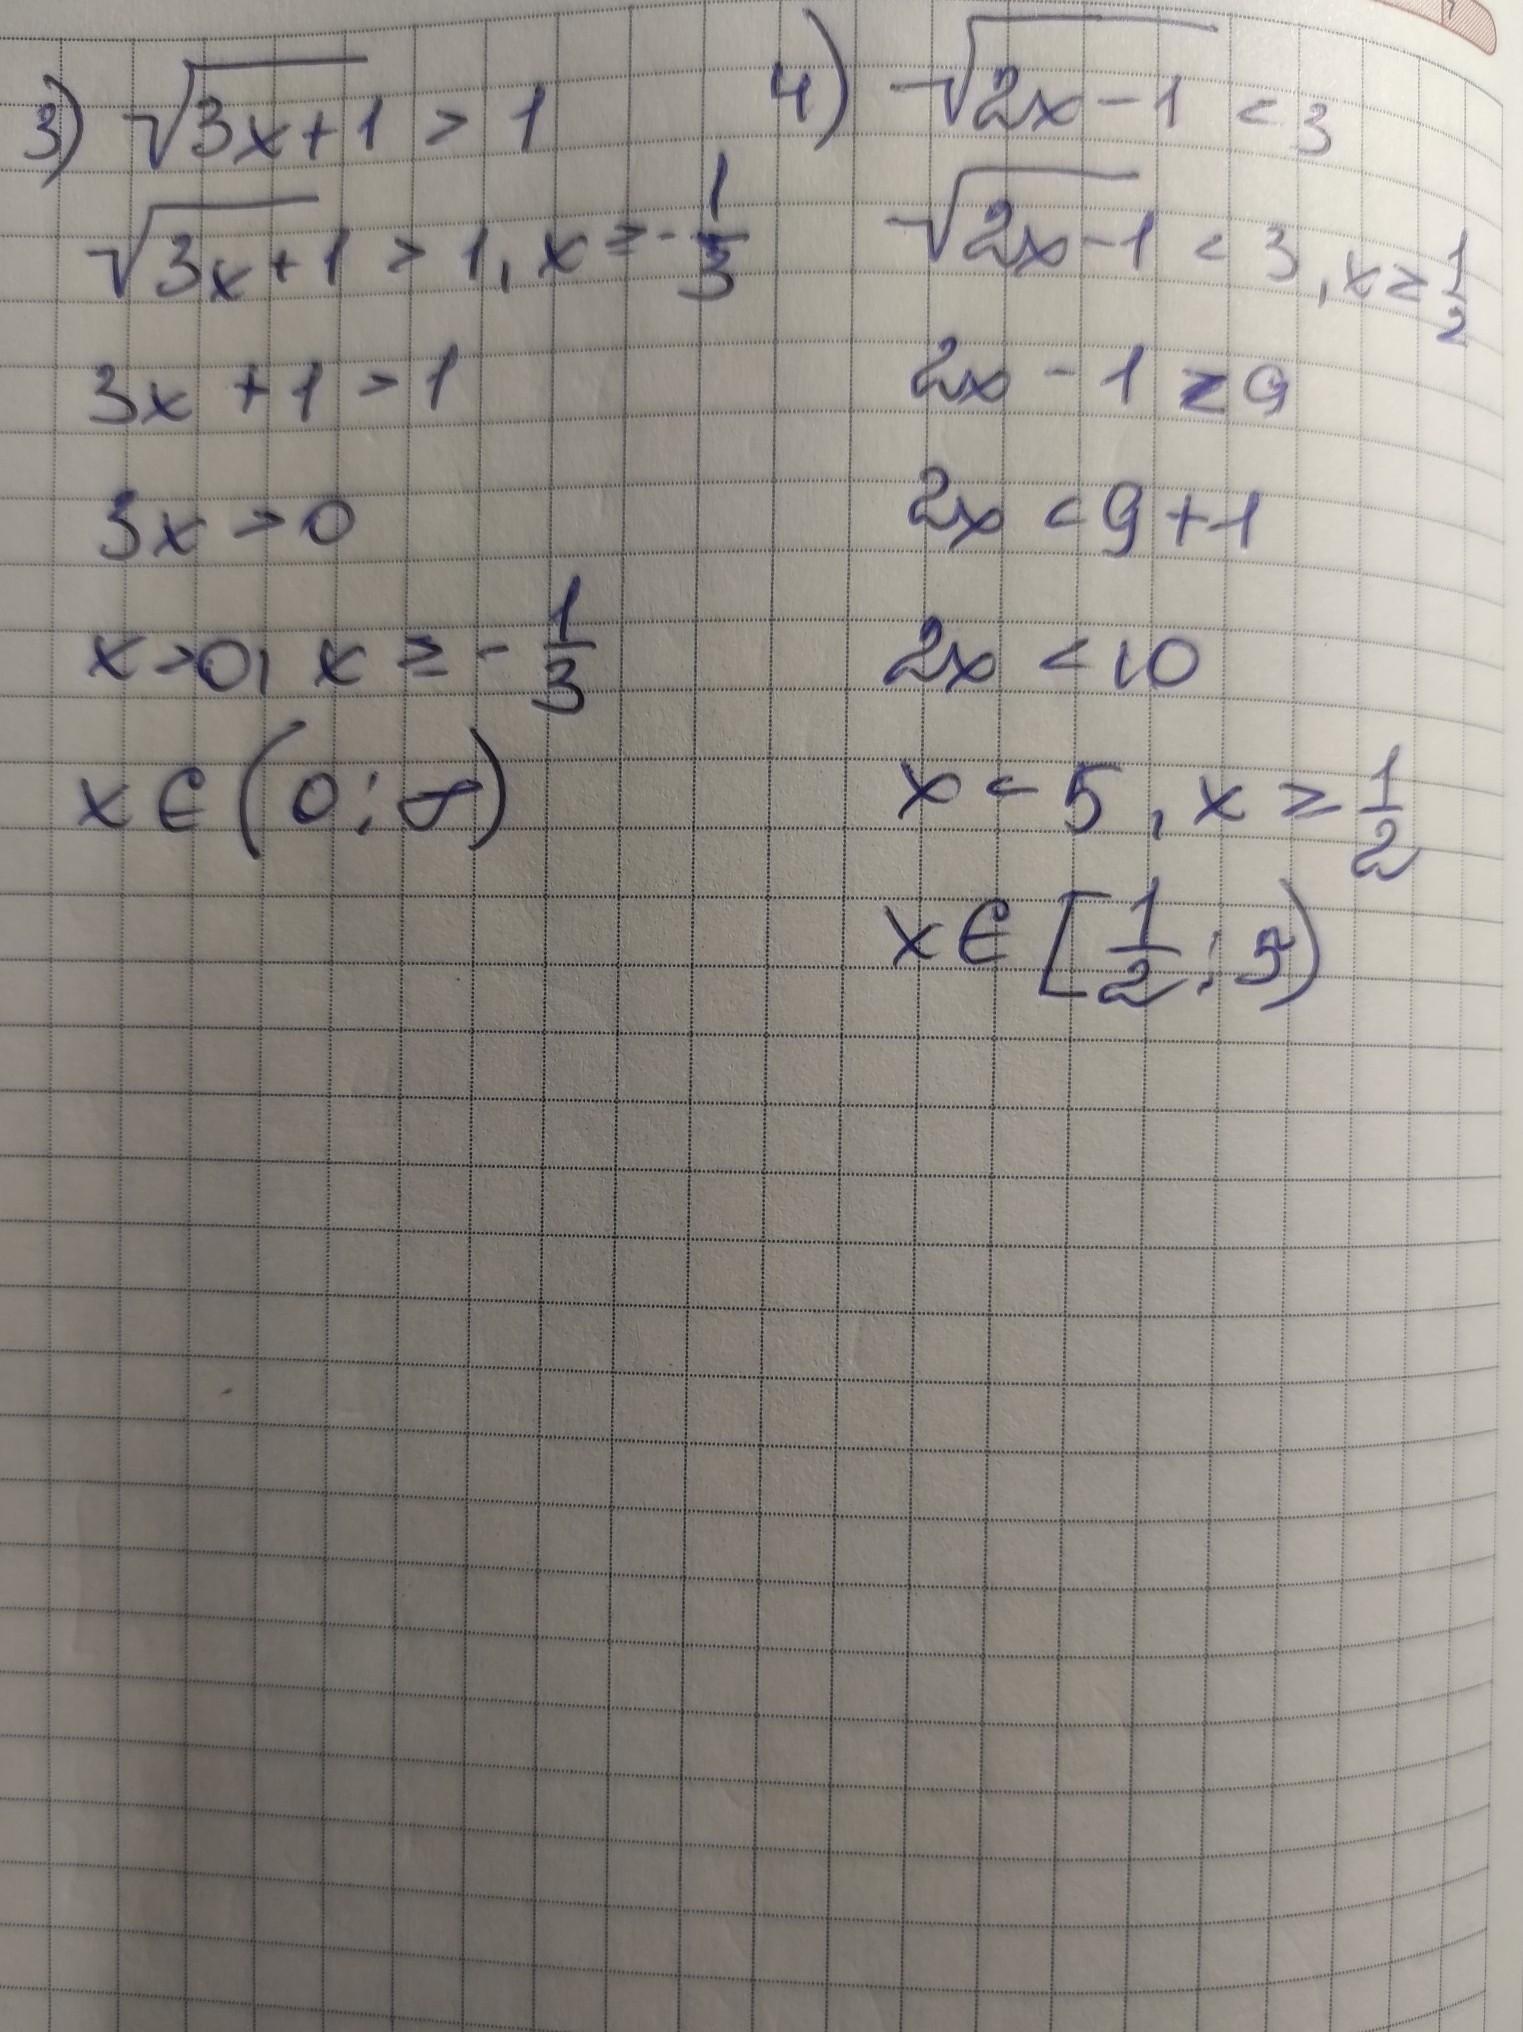 3) √3x+1 > 1
√3x+1 > 1, x ≥ - 1/3
3x + 1 > 1
3x > 0
x > 0, x ≥ - 1/3
x ∈ (0; ∞)
4) √2x-1 < 3
√2x-1 < 3, x ≥ 1/2
2x - 1 < 9
2x < 9 + 1
2x < 10
x < 5, x ≥ 1/2
x ∈ [1/2; 5)